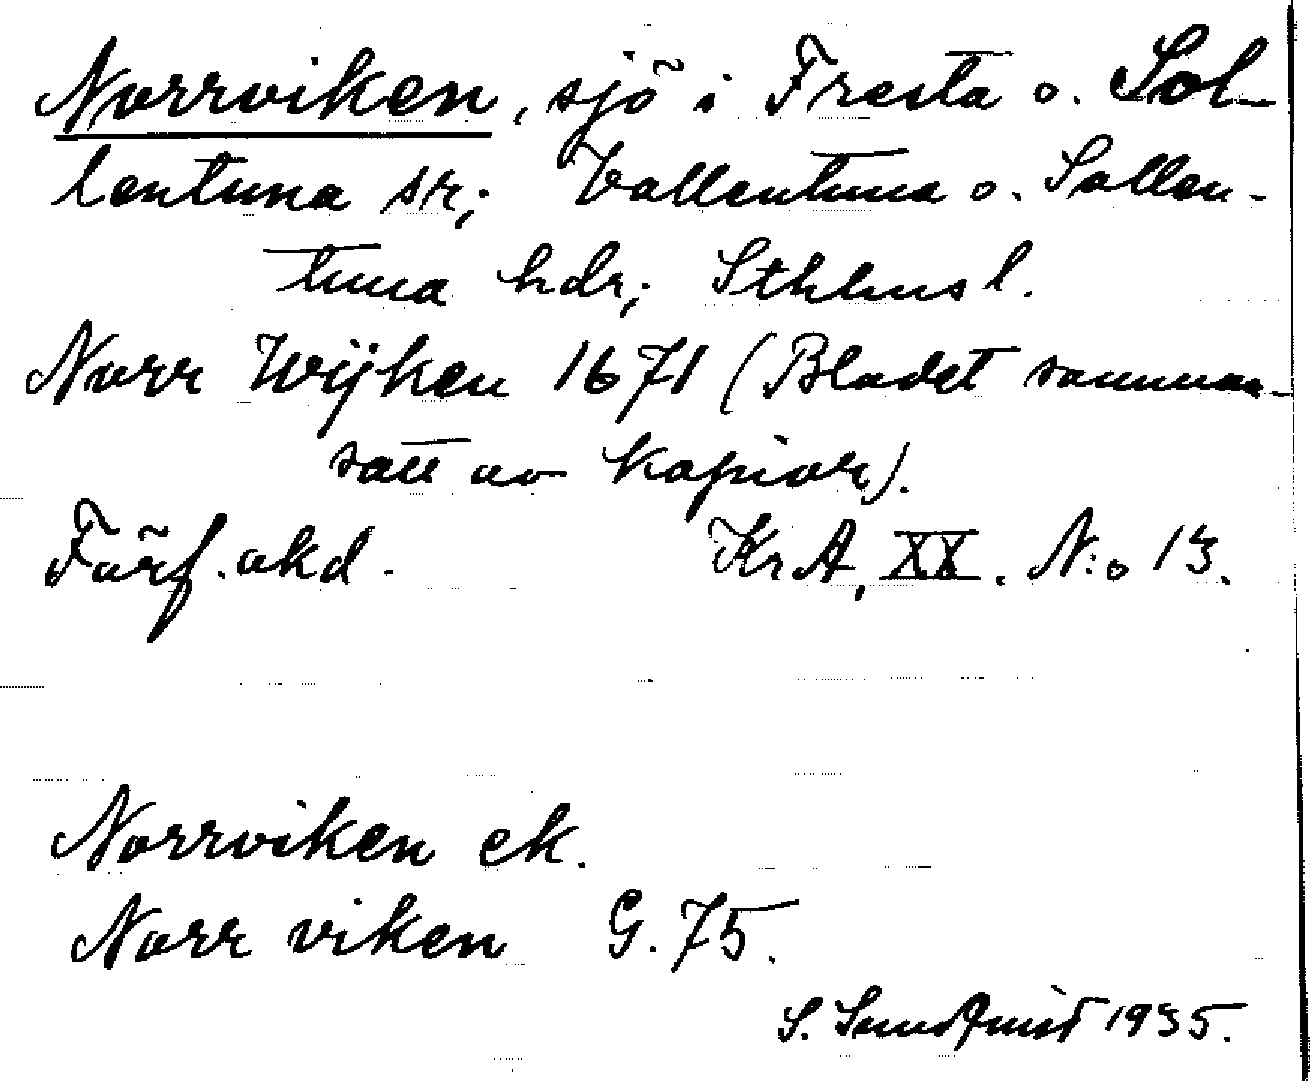 Norrviken, sjö i Fresta o. Sol-
lentuna sr; Vallentuna o. Sollen-
tuna hdr; Sthlms l.
Norr Wijken 1671 (Bladet samman-
satt av kopior).
Förf. okd. KrA, XX. N:o 13.
Norrviken ek.
Norr viken G. 75.
S. Sundquist 1935.